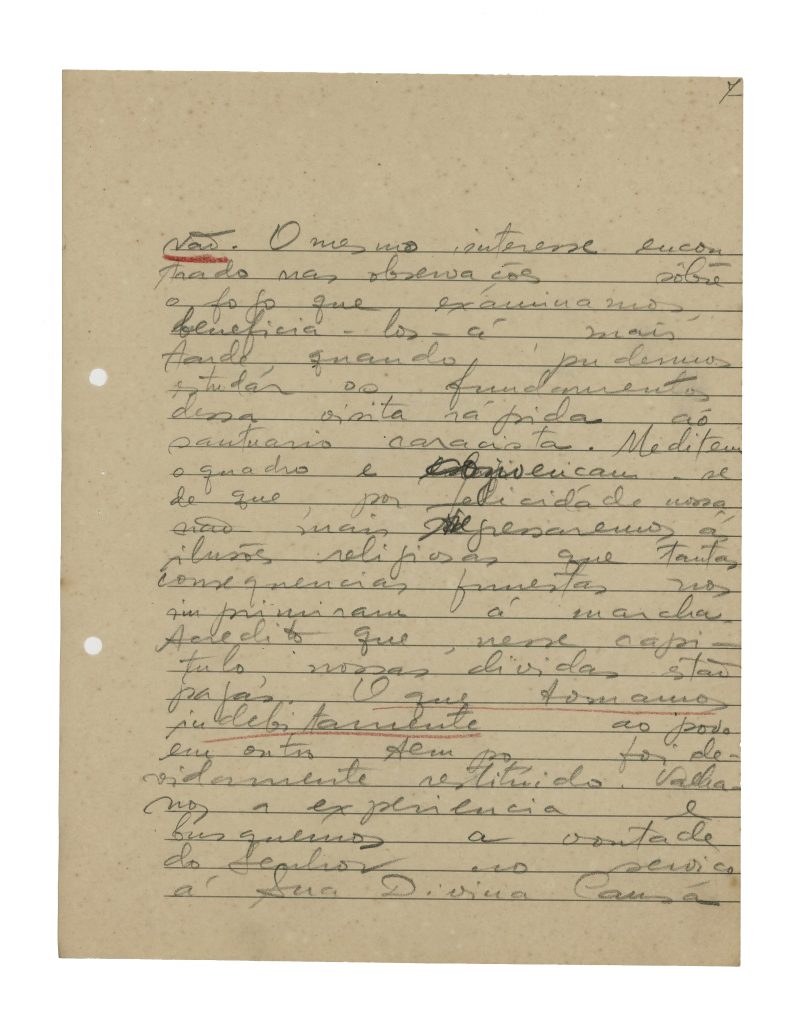 7
vão. O mesmo interesse encon
trado nas observações sôbre
o fogo que exáminamos
beneficia-los-á mais
tarde quando pudermos
estudár os fundamentos
dessa visita rápida aó
santuario caracista. Meditem
o quadro e convençam-se
de que, por felicidáde nossa
não mais regressaremos á
ilusões religiosas que tantas
consequencias funestas nos
imprimiram á marcha.
Acredito que, nesse capi-
tulo nossas dividas estão
pagás. O que tomamos
indebitamente ao povo
em outro tempo foi de-
vidamente restituído. Valha-
nos a experiencia e
busquemos a vontade
do Senhor no serviço
á Sua Divina Causa